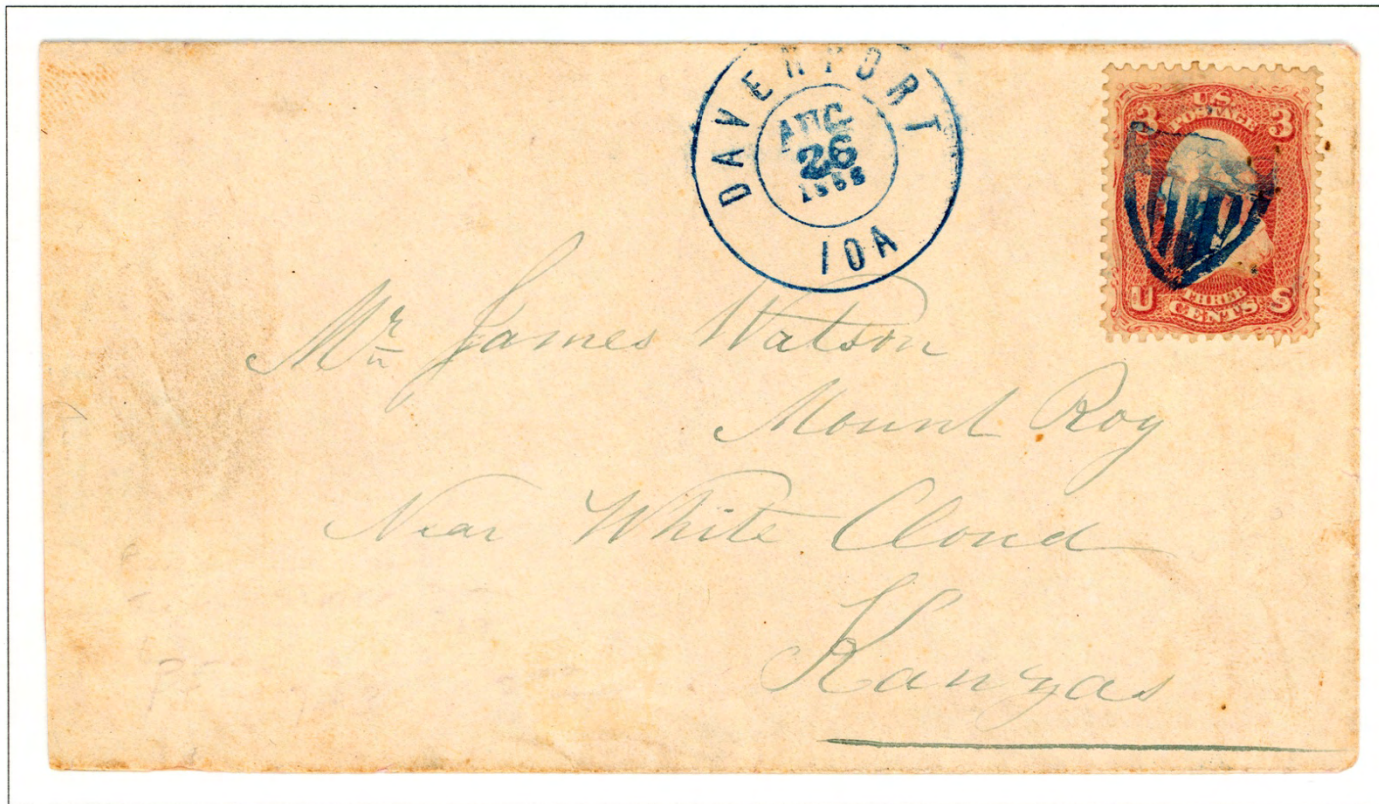 DAVENPORT
AUG
26
IOA
3 U.S. 3
POSTAGE
U THREE S
CENTS
Mr. James Watson
Mount Roy
Near White Cloud
Kanzas